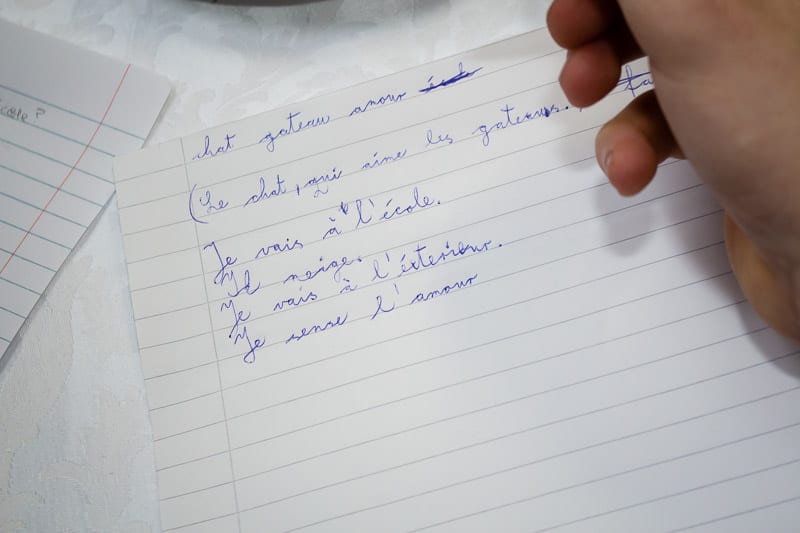 école?
chat gateau amour
(Le chat, qui aime les gateaux.
Je vais à l'école.
Il neige.
Je vais à l'éxterieur.
Je sense l'amour